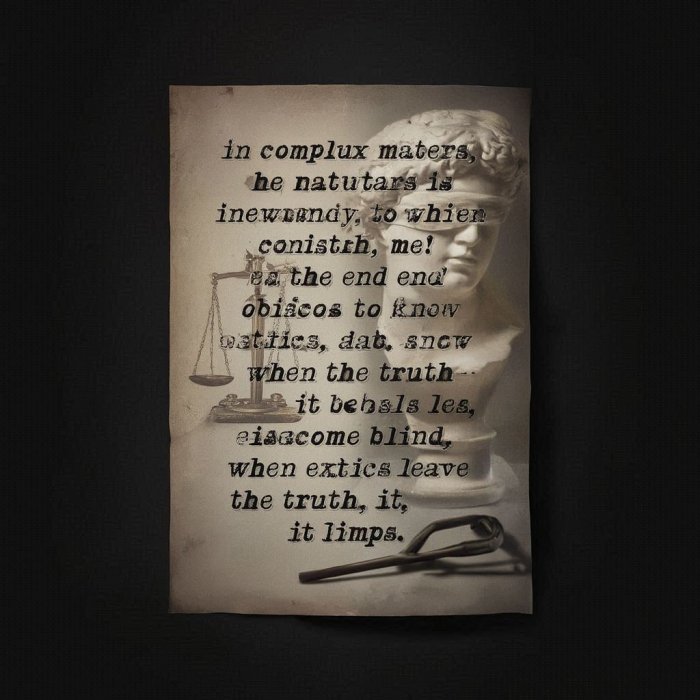 in complux maters,
he natutars is
to whien
conistrh, me!
ea the end end
obiacos to know
dab. snow
when the truth
it behsals les,
eisacome blind,
when extics leave
the truth, it,
it limps.